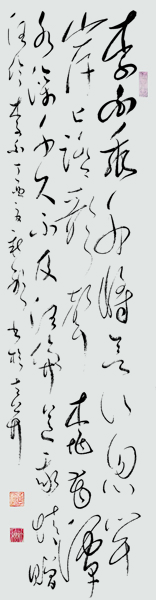 李白乘舟將欲行忽聞
岸上踏歌聲桃花潭
水深千尺不及汪倫送我情贈
汪倫李白丁酉